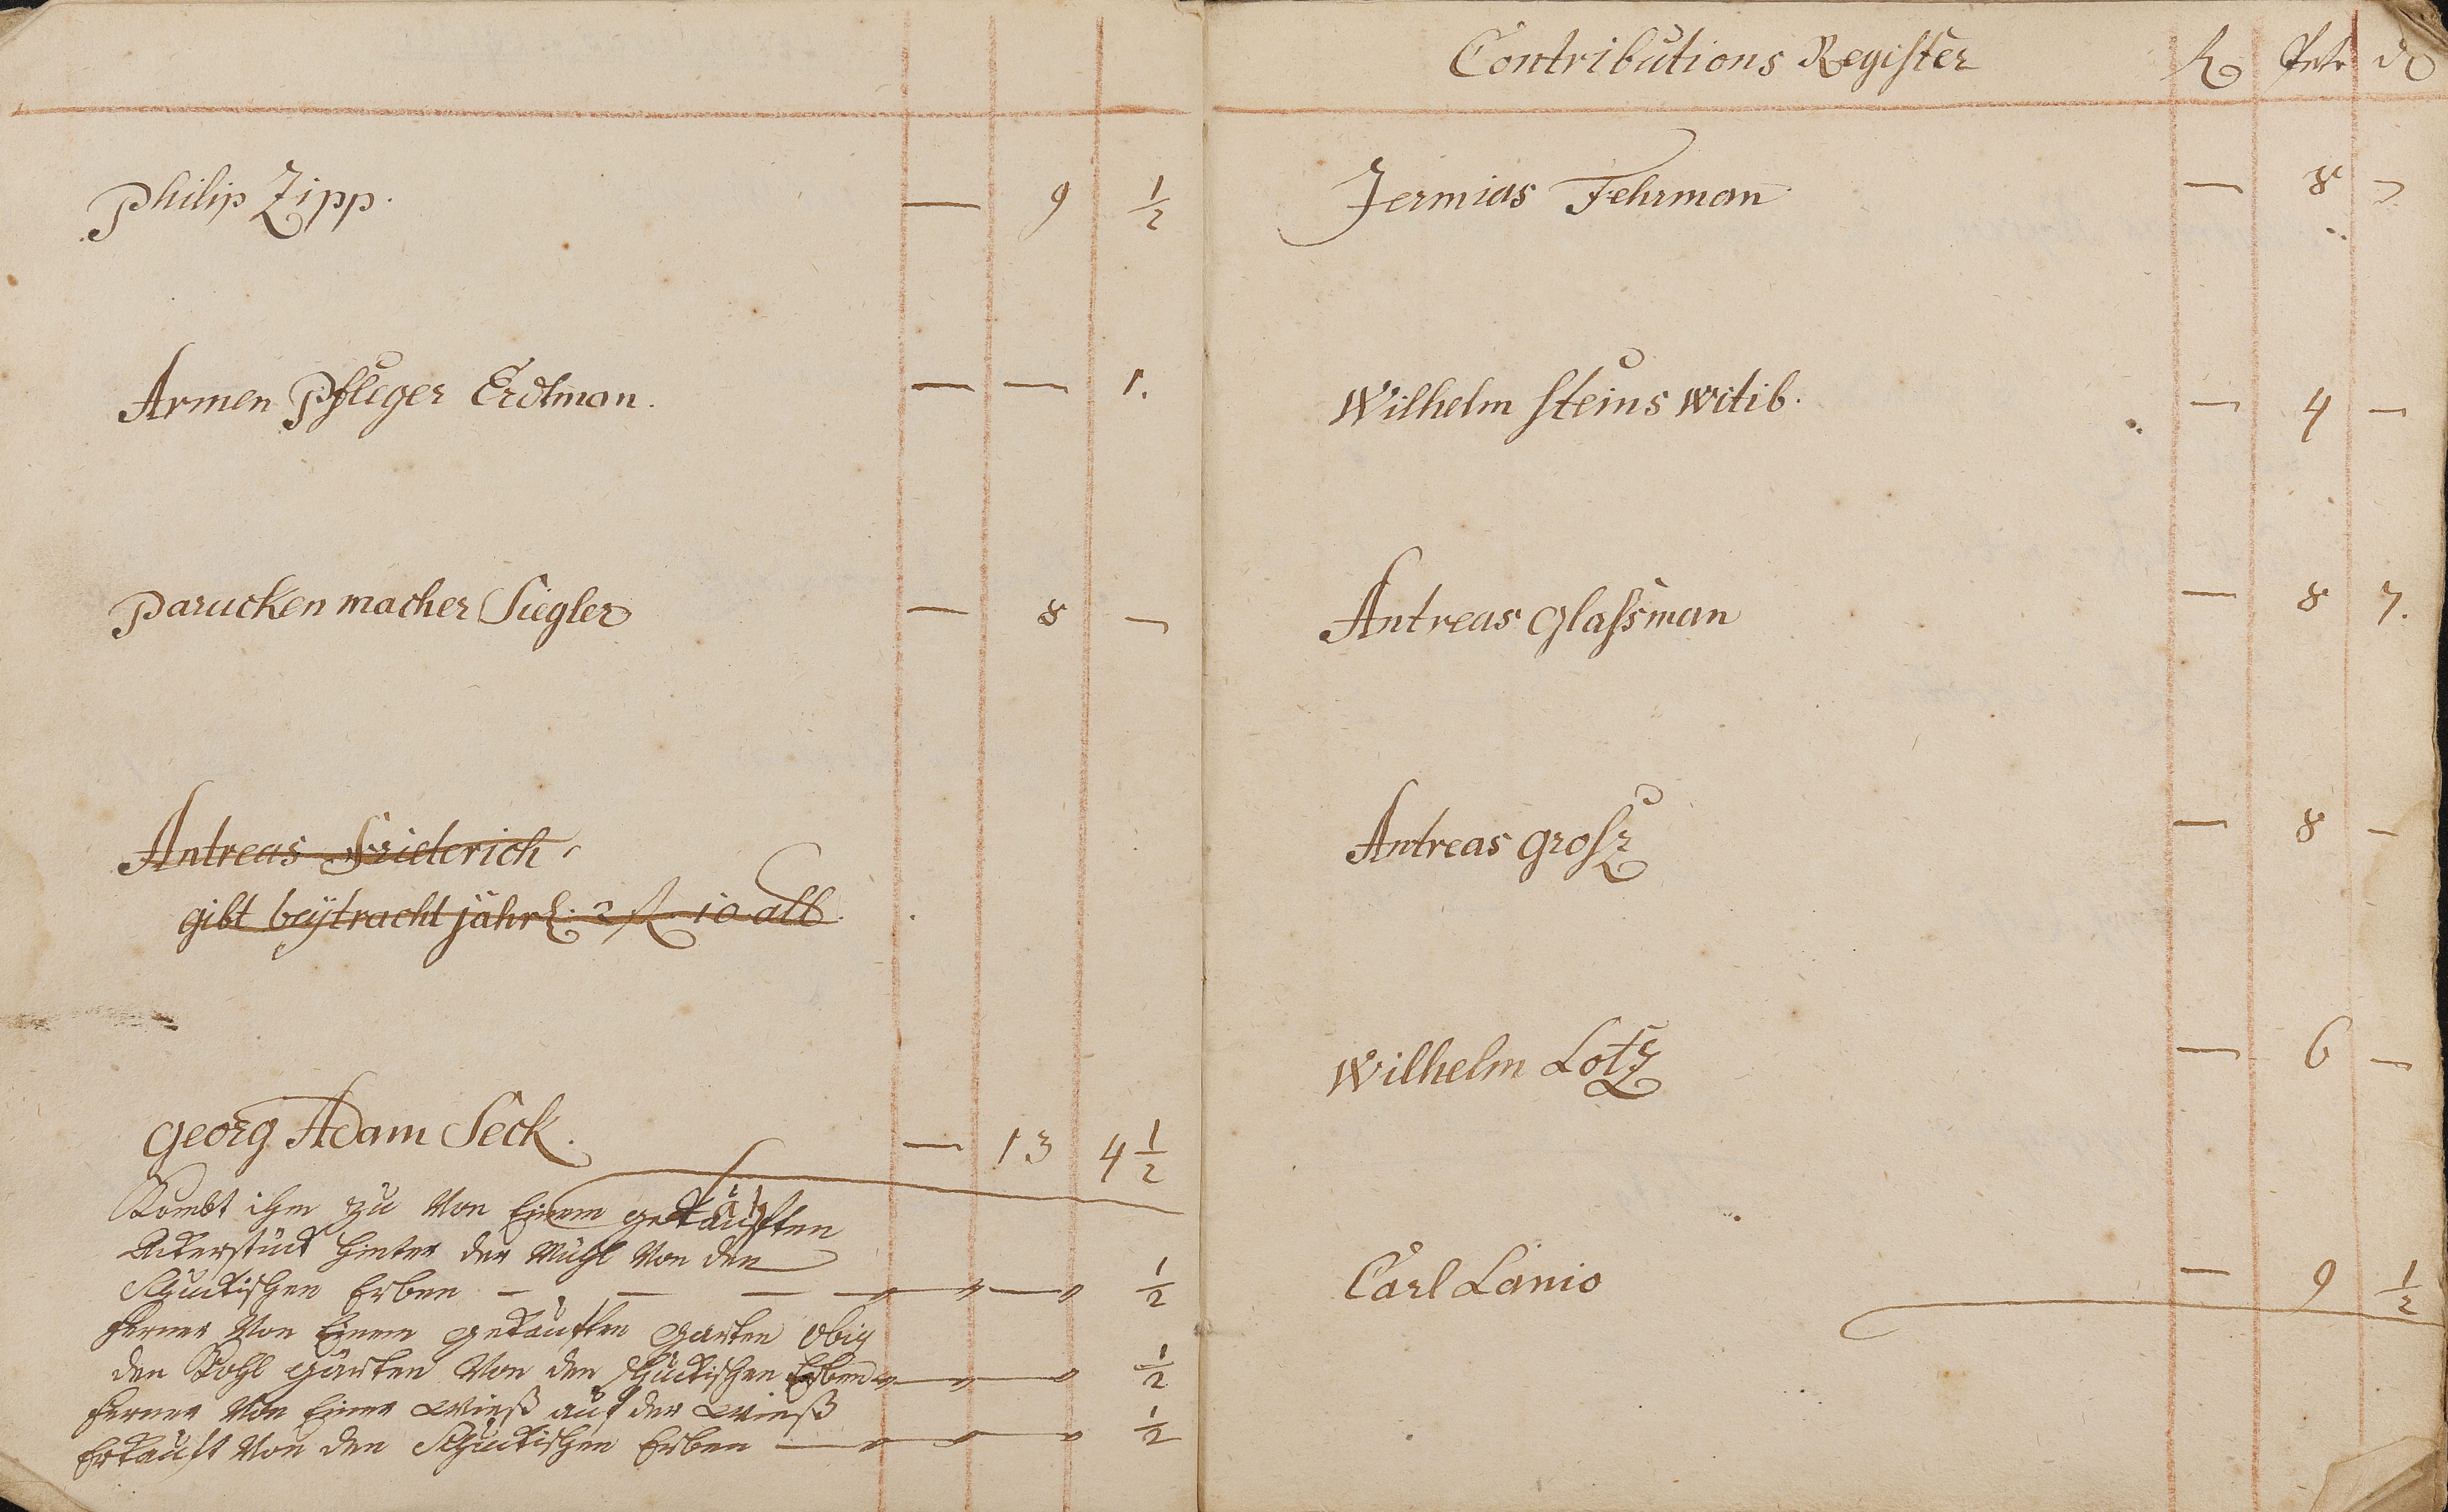 Philip Zipp. — 9 ½
Armen Pfleger Erdtman. — — 1.
Parucken macher Siegler — 8 —
Antreas Friederich
gibt beÿtracht jährl. 2 fl 10 alb.
georg Adam Seck. — 13 4½
Kombt ihm zu Von Einem gekaüften
Ackerstück hinter der Mühl Von den
Schuckischen Erben — — — — — ½
ferner Von Einem gekaüften garten obig
den Kohl gärten Von den Schuckischen Erben — — ½
ferner Von Einer Wieß auf der Wieß
Erkauft Von den Schuckischen Erben — — ½
Contributions Register
Jermias Fehrman — 8 —
Wilhelm Steins witib. — 4 —
Antreas glassman — 8 7.
Antreas grosz — 8 —
Wilhelm Lotz — 6 —
Carl Lanio — 9 ½